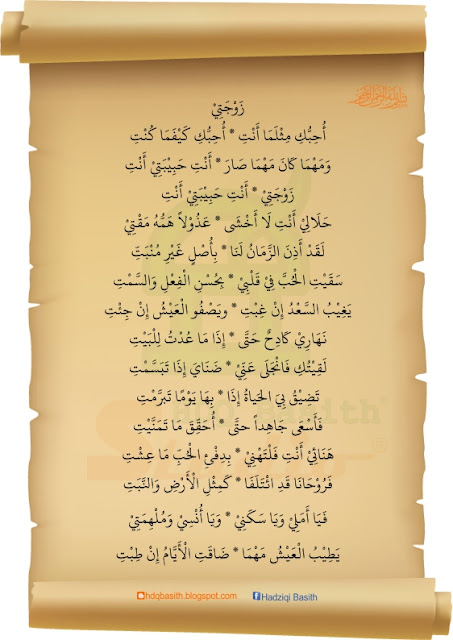 زَوْجَتِيْ
أُحِبُّكِ مِثْلَمَا أَنْتِ * أُحِبُّكِ كَيْفَمَا كُنْتِ
وَمَهْمَا كَانَ مَهْمَا صَارَ * أَنْتِ حَبِيْبَتِيْ أَنْتِ
زَوْجَتِيْ * أَنْتِ حَبِيْبَتِيْ أَنْتِ
حَلَالِيْ أَنْتِ لَا أَخْشَى * عَذُوْلاً هَمُّهُ مَقْتِيْ
لَقَدْ أَذِنَ الزَّمَانُ لَنَا * بِأُصْلٍ غَيْرِ مُنْبَتِّ
سَقَيْتِ الْحُبَّ فِيْ قَلْبِيْ * بِحُسْنِ الْفِعْلِ وَالسَّمْتِ
يَغِيْبُ السَّعْدُ إِنْ غِبْتِ * وَيَصْفُو الْعَيْشُ إِنْ جِئْتِ
نَهَارِيْ كَادِحٌ حَتَّى * إِذَا مَا عُدْتُ لِلْبَيْتِ
لَقِيْتُكِ فَانْجَلَى عَنِّيْ * ضَنَايَ إِذَا تَبَسَّمْتِ
تَضِيْقُ بِيَ الْحَيَاةُ إِذَا * بِهَا يَوْمًا تَبَرَّمْتِ
فَأَسْعَى جَاهِداً حَتَّى * أُحَقِّقَ مَا تَمَنَّيْتِ
هَنَائِيْ أَنْتِ فَلْتَهْنِيْ * بِدِفْئِ الْحُبِّ مَا عِشْتِ
فَرُوْحَانَا قَدِ ائْتَلَفَا * كَمِثْلِ الْأَرْضِ وَالنَّبْتِ
فَيَا أَمَلِيْ وَيَا سَكَنِيْ * وَيَا أُنْسِيْ وَمُلْهِمَتِيْ
يَطِيْبُ الْعَيْشُ مَهْمَا * ضَاقَتِ الْأَيَّامُ إِنْ طِبْتِ
hdqbasith.blogspot.com Hadziqi Basith